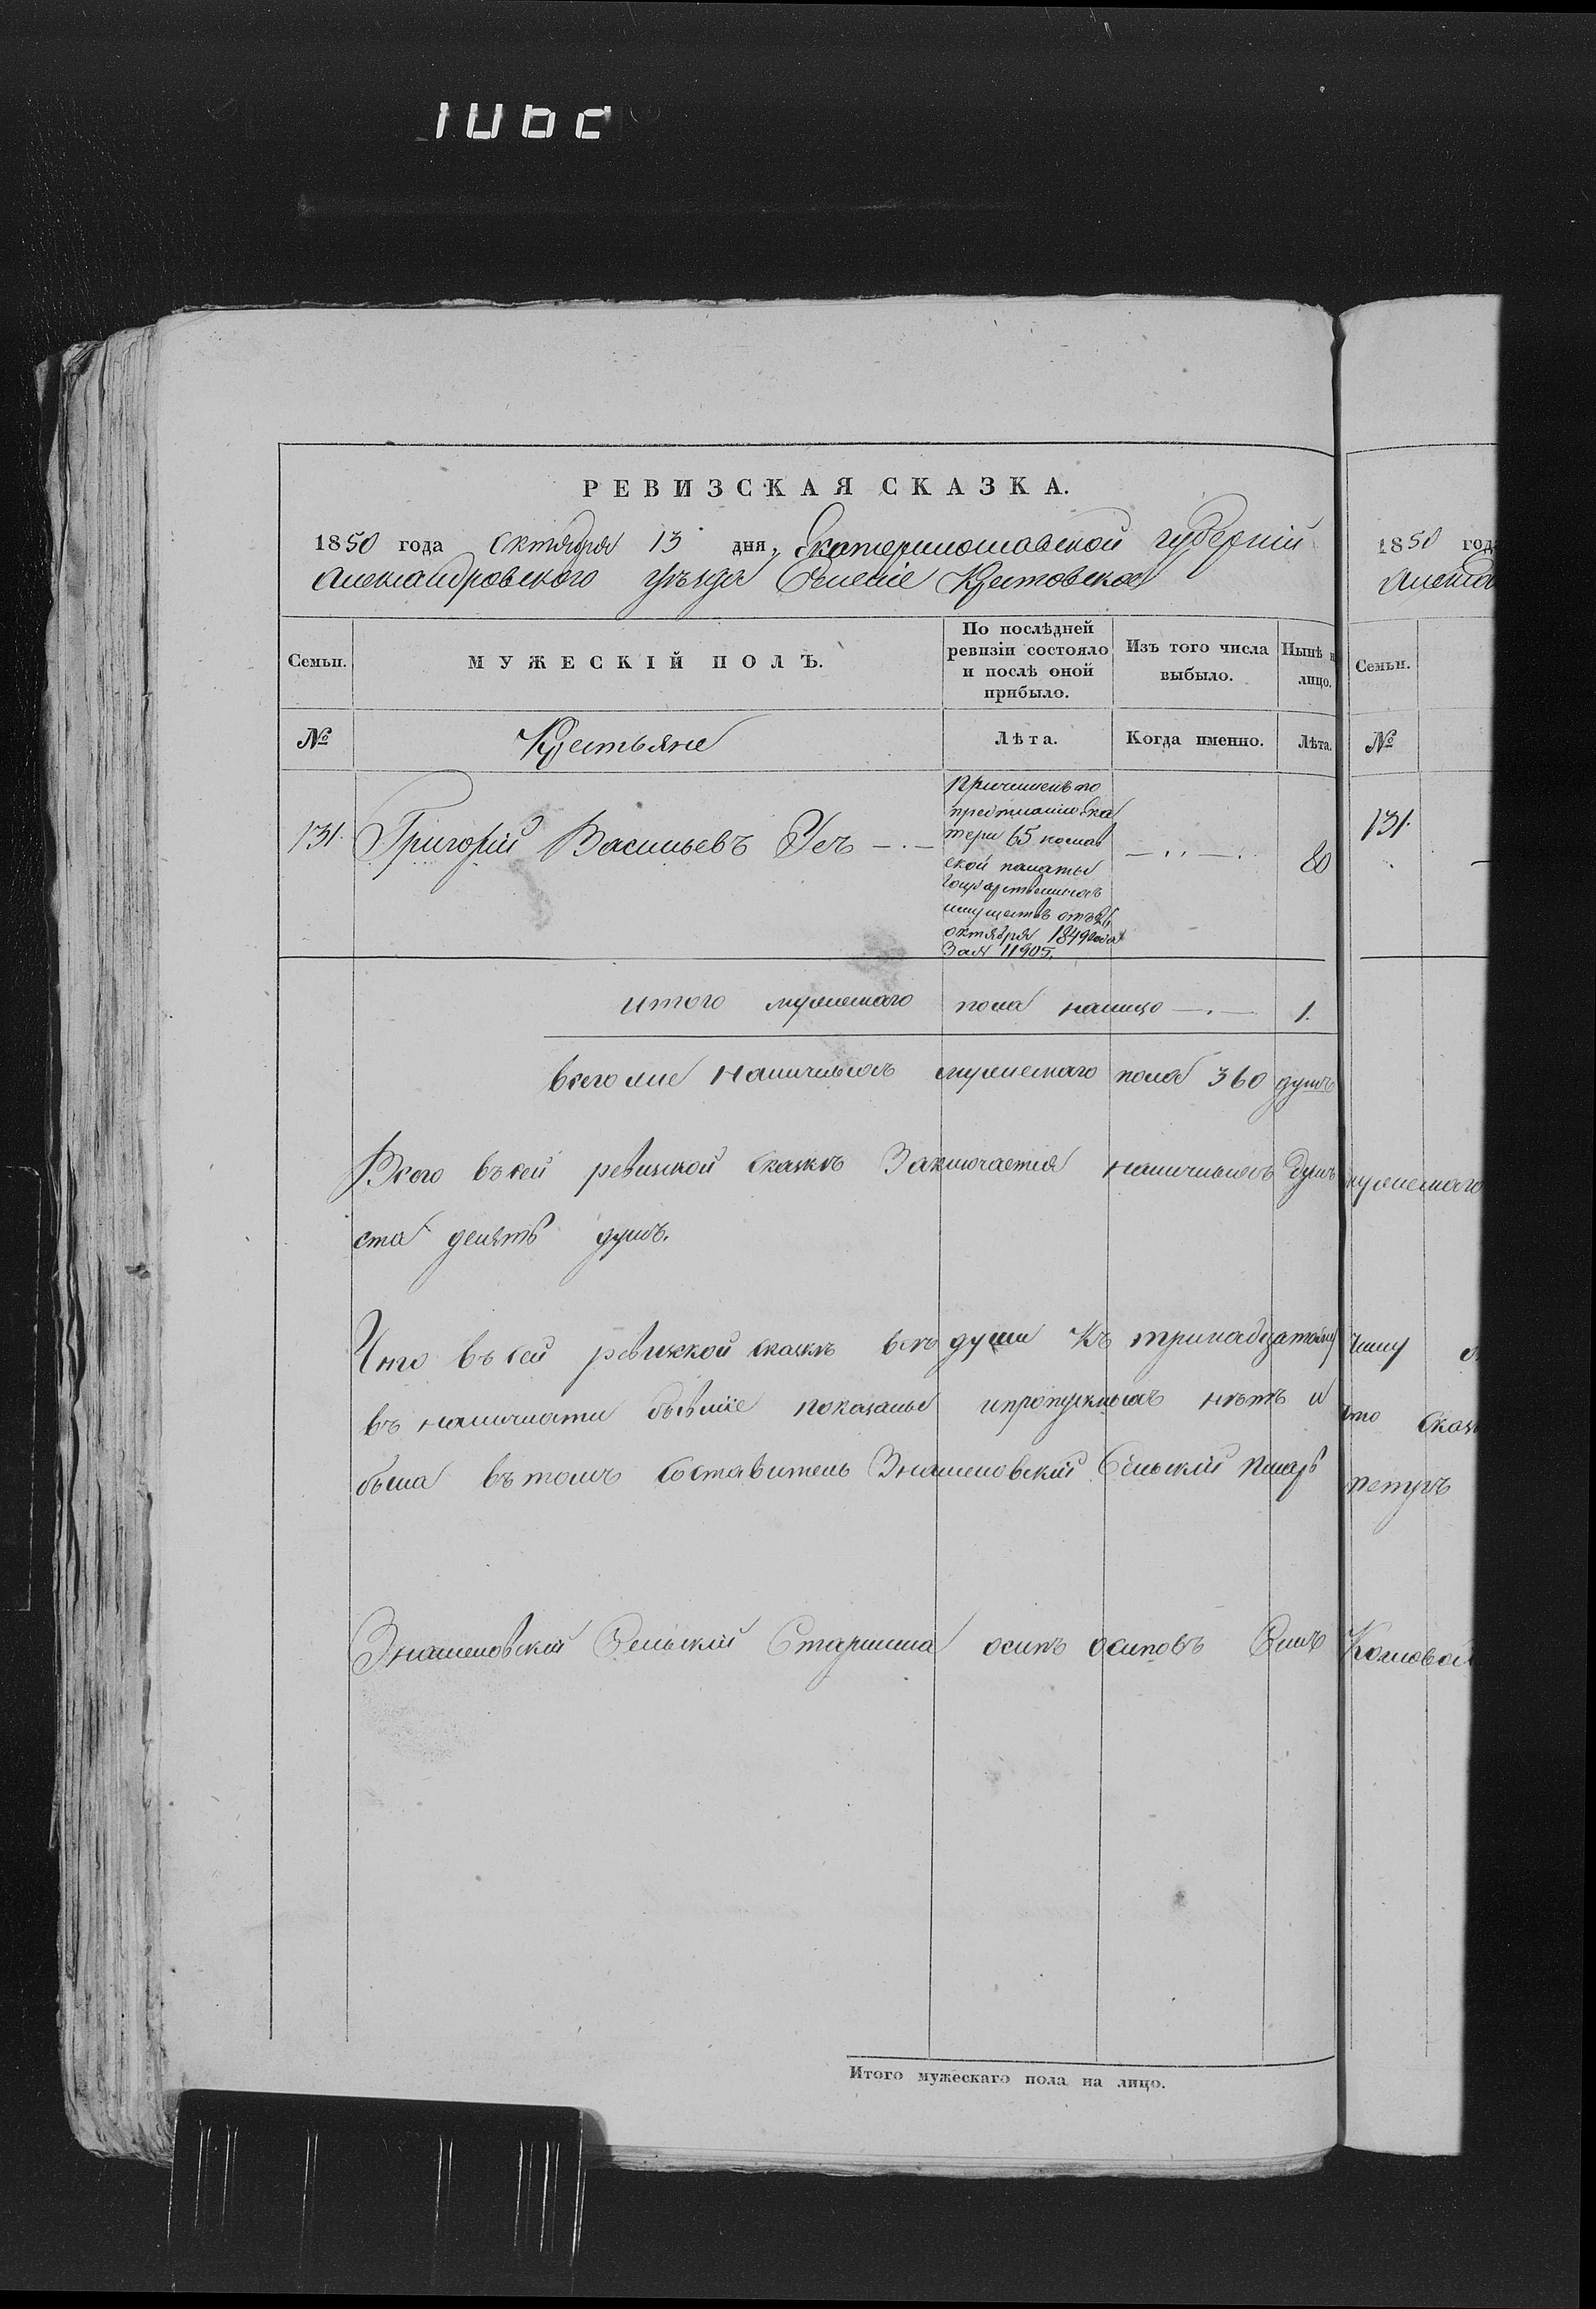 РЕВИЗСКАЯ СКАЗКА.
1850 года октября 13 дня, Екатеринославской губерніи
Александровского уѣзда Селеніе Крестовское
Семьи.
МУЖЕСКІЙ ПОЛЪ.
По послѣдней ревизіи состояло и послѣ оной прибыло.
Изъ того числа выбыло.
Нынѣ н лицо.
№
Крестьяне
Лѣта.
Когда именно.
Лѣта.
131.
Григорій Васильевъ
Причисленъ по
предписанію Ека
тери 65 нослав
ской палаты
Государственныхъ
имуществъ отъ
октября 1849 года
За № 11905.
80
итого мужескаго пола налицо 1.
всего же наличныхъ мужескаго пола 360 душъ
Всего въ сей ревизской сказкѣ Заключается наличныхъ душъ
ста девять душъ.
Что въ сей ревизской сказкѣ всѣ души къ тринадцатому
въ наличности бывшіе показаны и пропускныхъ нѣтъ и
была въ томъ Составитель Знаменовскій Сельскій Писарь
Знаменовскій Сельскій Старшина осипъ осиповъ Сынъ
Итого мужескаго пола на лицо.
1850 год
Алекса
Семьи.
№
131.
мужескаго
числу
что сказ
петръ
Кошовой